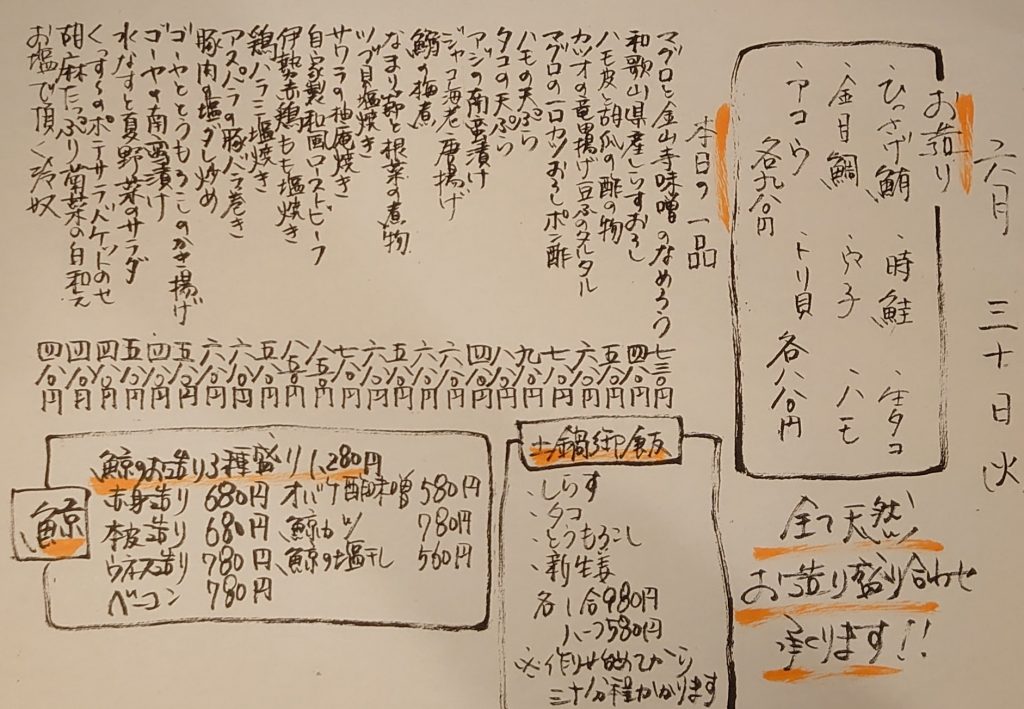 六月 三十日 火
お造り
、ひっさげ鮪 、時鮭 、生タコ
、金目鯛 、穴子 、ハモ
、アコウ 、トリ貝
各九八〇円 各八八〇円
全て天然
お造り盛り合わせ
承ります!!
本日の一品
マグロと金山寺味噌のなめろう 七三〇円
和歌山県産しらすおろし 四八〇円
ハモ皮と胡瓜の酢の物 五八〇円
カツオの竜田揚げ豆ふのタルタル 六八〇円
マグロの一口カツおろしポン酢 七八〇円
ハモの天ぷら 九八〇円
タコの天ぷら 八八〇円
アジの南蛮漬け 四八〇円
ジャコ海老唐揚げ 六八〇円
鰯の梅煮 六八〇円
なまり節と根菜の煮物 五八〇円
ツブ貝塩焼き 六八〇円
サワラの柚庵焼き 七八〇円
自家製和風ローストビーフ 八五〇円
伊勢赤鶏もも塩焼き 八五〇円
鶏ハラミ塩焼き 五八〇円
アスパラの豚バラ巻き 六八〇円
豚肉の塩ダレ炒め 六八〇円
ゴーヤととうもろこしのかき揚げ 五八〇円
ゴーヤの南蛮漬け 四八〇円
水なすと夏野菜のサラダ 五八〇円
くっすんのポテサラバケットのせ 四八〇円
胡麻たっぷり菊菜の白和え 四八〇円
お塩で頂く冷奴 四八〇円
土鍋御飯
、しらす
、タコ
、とうもろこし
、新生姜
各1合980円
ハーフ580円
※作り始めてから
三十分程かかります
鯨
鯨のお造り3種盛り 1,280円
赤身造り 680円 オバケ酢味噌 580円
本皮造り 680円 鯨カツ 780円
ウネス造り 780円 鯨の塩干し 560円
ベーコン 780円